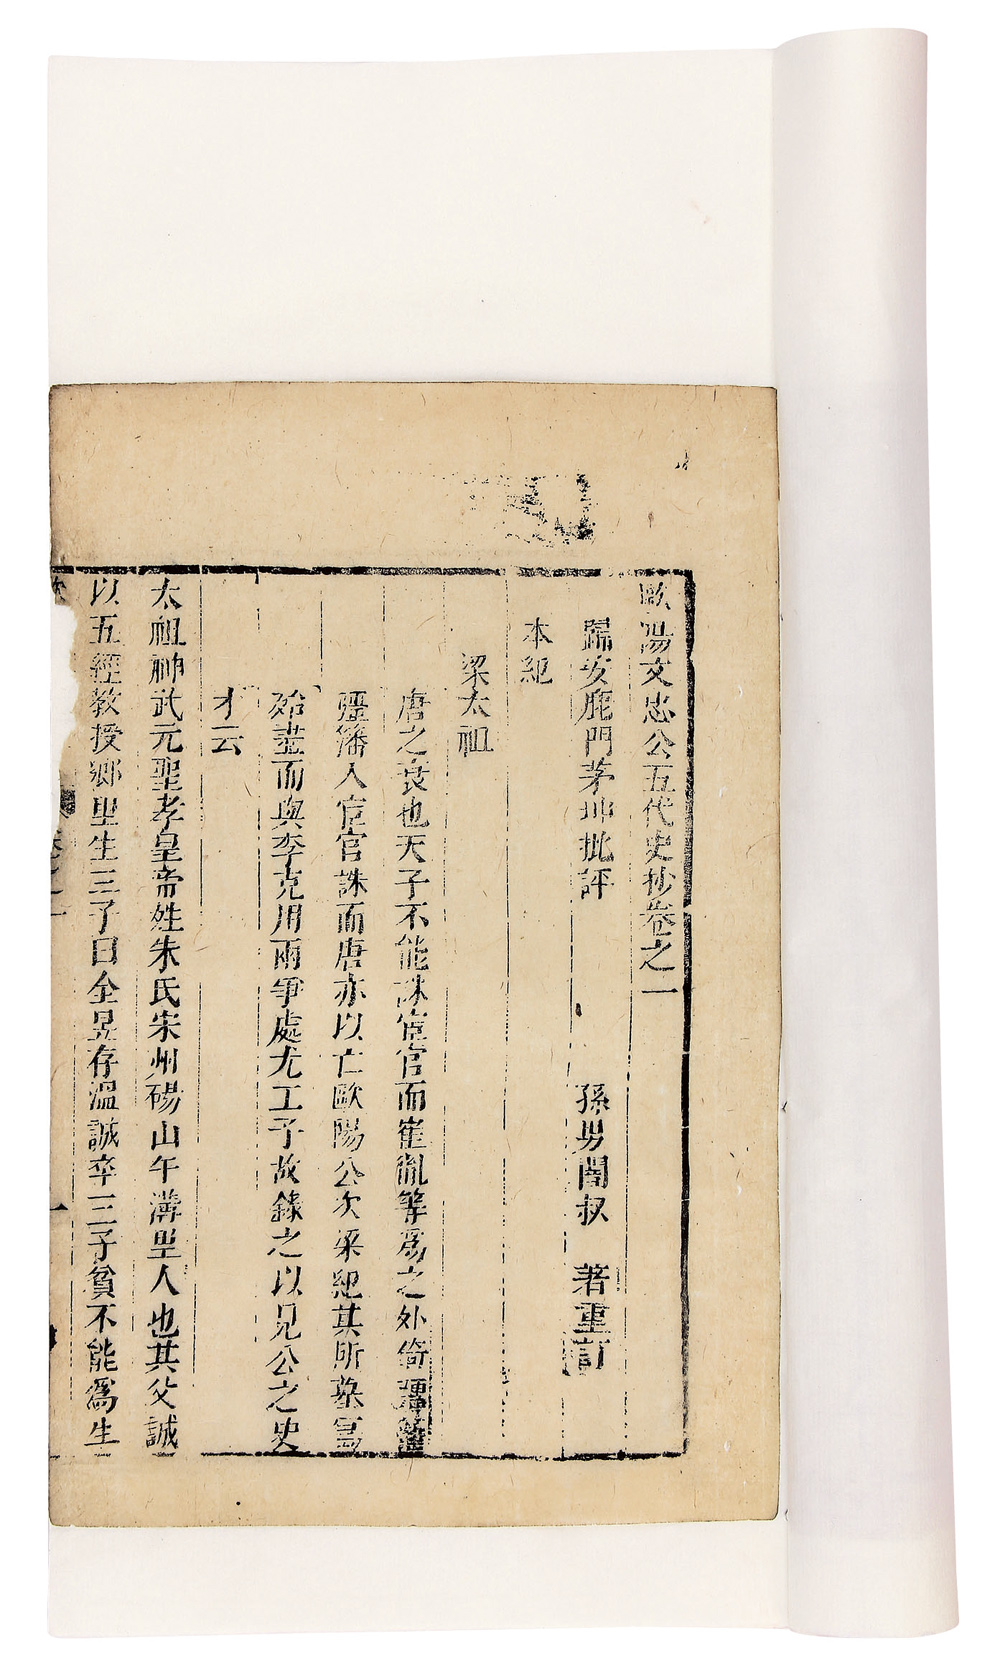 歐陽文忠公五代史抄卷之一
歸安鹿門茅坤批評 孫男闇叔 著重訂
本紀
梁太祖
唐之衰也天子不能誅宦官而崔胤等爲之外倚彊藩
彊籓入宦官誅而唐亦以亡歐陽公次梁紀其所纂
殆盡而與李克用兩爭處尤工予故錄之以見公之史
才云
太祖神武元聖孝皇帝姓朱氏宋州碭山午溝里人也其父誠
以五經教授鄉里生三子曰全昱存溫誠卒三子貧不能爲生
卷之一
一